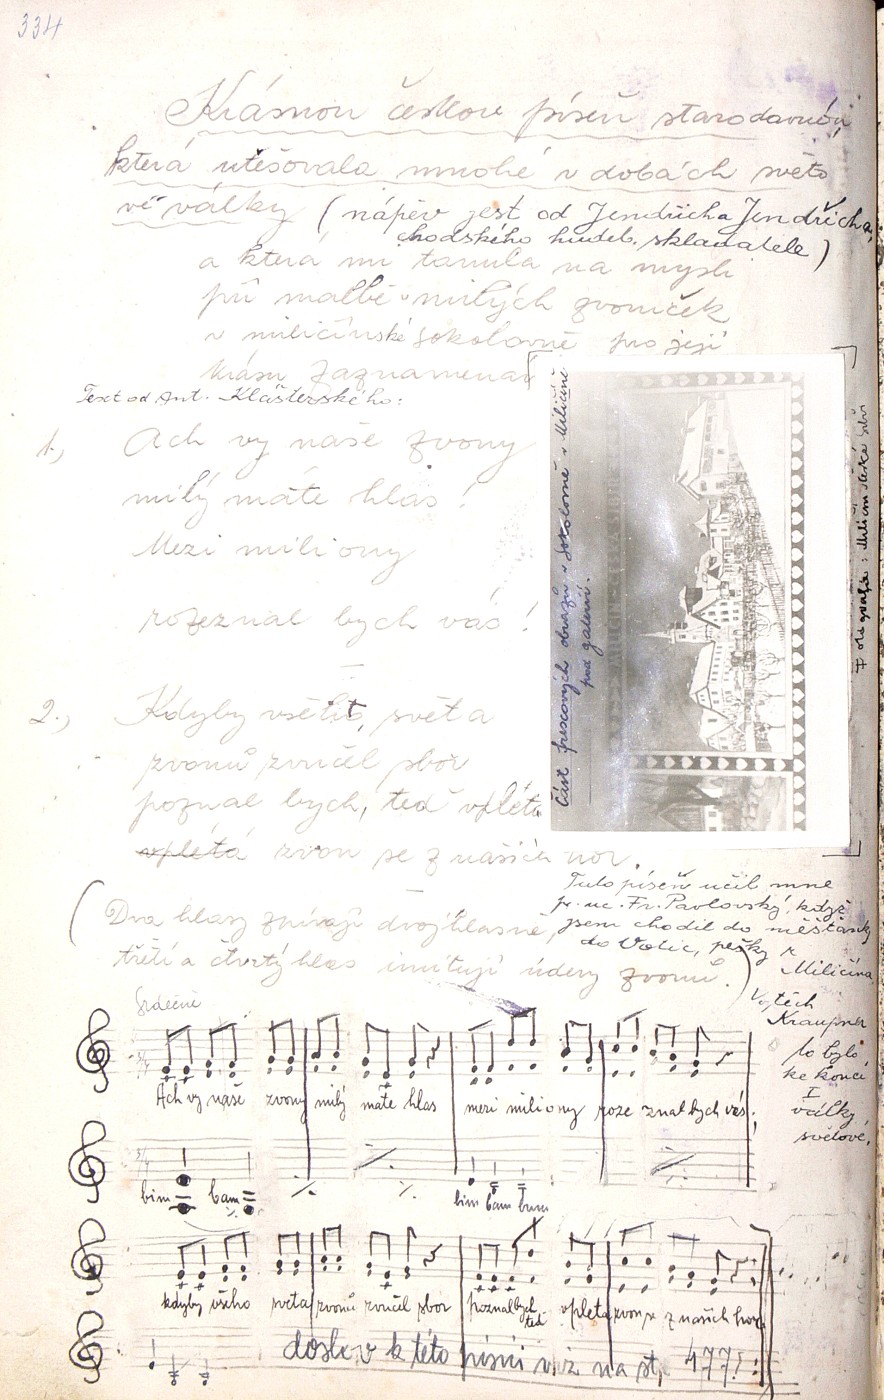 334
Krásnou českou píseň starodavnou,
která utěšovala mnohé v dobách světo
vé války (nápěv jest od Jindřicha Jindřicha,
chodského hudeb. skladatele)
a která mi tanula na mysli
při malbě milých zvoniček
v miličínské sokolovně pro její
krásu zaznamenal
Text od Ant. Klášterského:
1., Ach vy naše zvony
milý máte hlas!
Mezi miliony
rozeznal bych vás!
2., Kdyby všeho, světa
zvonů zvučel sbor
poznal bych, teď vplétá
vplétá zvon se z našich hor.
část frescových obrazů v Sokolovně v Miličíně
pod galerií.
(Dva hlasy zpívají dvojhlasně,
třetí a čtvrtý hlas imitují údery zvonů.)
Tuto píseň učil mne
p. uč. Fr. Pavlovský, když
jsem chodil do měšťanky
do Votic, pěšky
z
Miličína
Vojtěch
Kraupner
to bylo
ke konci
I
války
světové.
Srdečně
3/4
Ach vy naše zvony milý máte hlas mezi miliony roze znal bych vás;
3/4
bim bam bim bam bum
kdyby všeho světa zvonů zvučel sbor poznal bych teď vpletá zvon se z našich hor
doslov k této písni viz na str. 477!